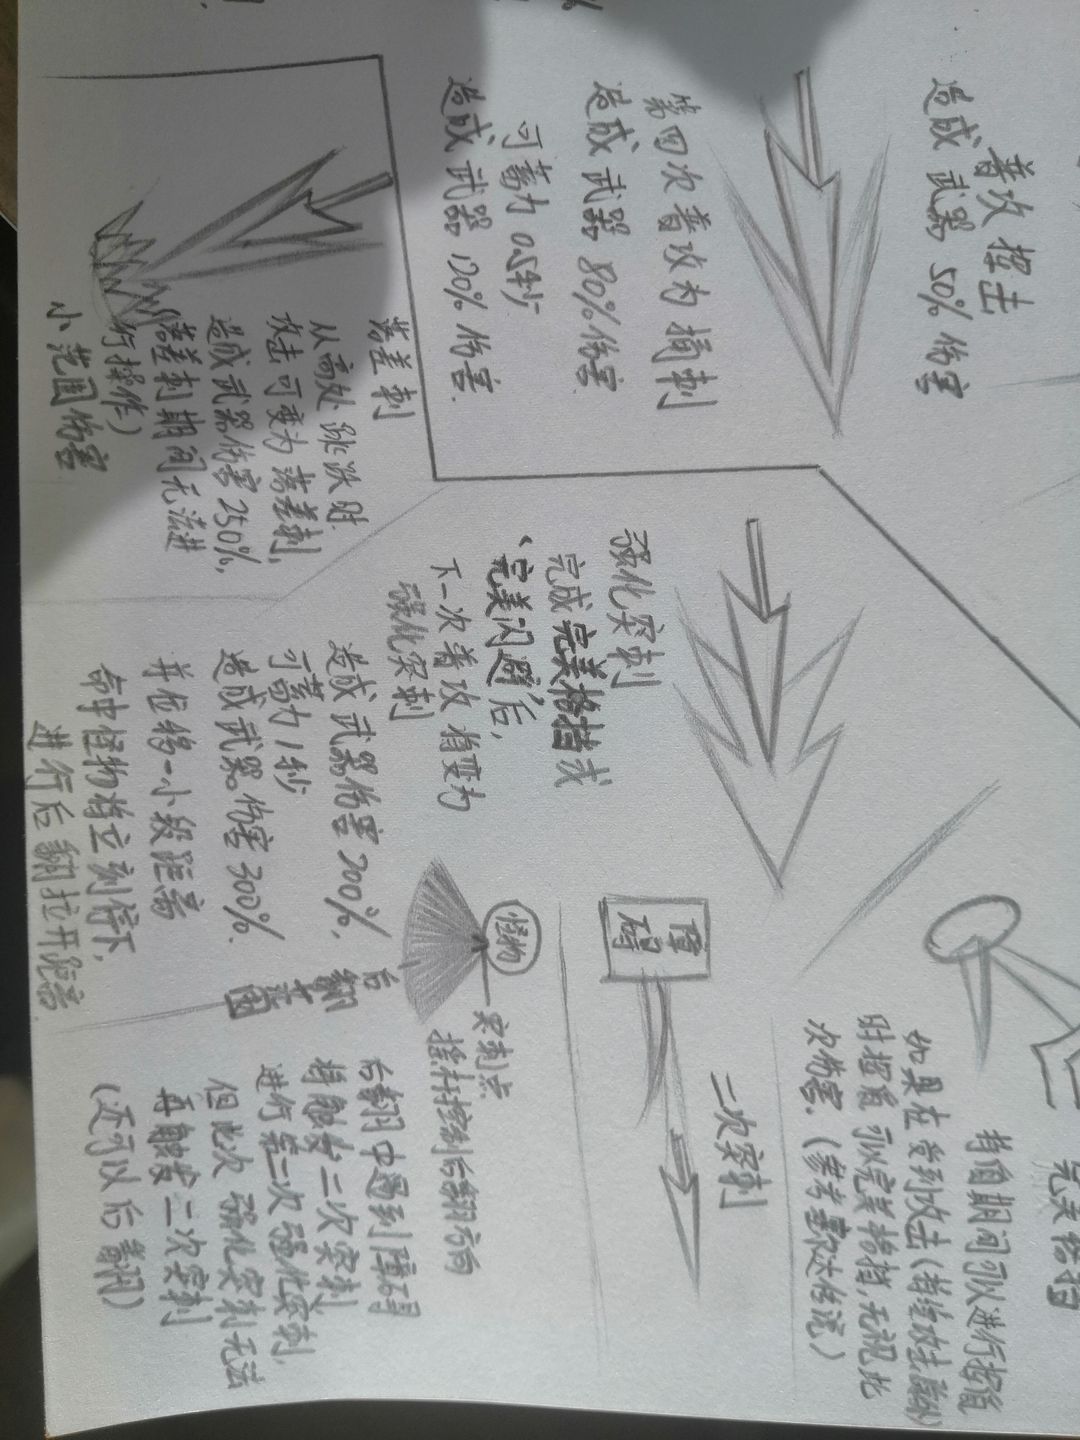 普攻挥击
造成武器50%伤害
第四次普攻为捅刺
造成武器80%伤害
可蓄力0.5秒
造成武器120%伤害
落差刺
从高处跳跃时
攻击可变为落差刺,
造成武器伤害250%,
(落差刺期间无法进
行操作)
小范围伤害
强化突刺
完成完美格挡或
、完美闪避,后,
下一次普攻将变为
强化突刺
造成武器伤害200%,
可蓄力1秒
造成武器伤害300%.
并位移一小段距离
命中怪物将立刻停下,
进行后翻拉开距离
完美格挡
持盾期间可以进行
如果在受到攻击(持续攻击
时 可以完美格挡,无视此
次伤害.(参考塞尔达传说)
障碍
二次突刺
怪物
突刺点
摇杆控制后翻方向
后翻
范围
后翻中遇到障碍
将触发二次突刺
进行第二次强化突刺,
但此次强化突刺无法
再触发二次突刺
(还可以后翻)